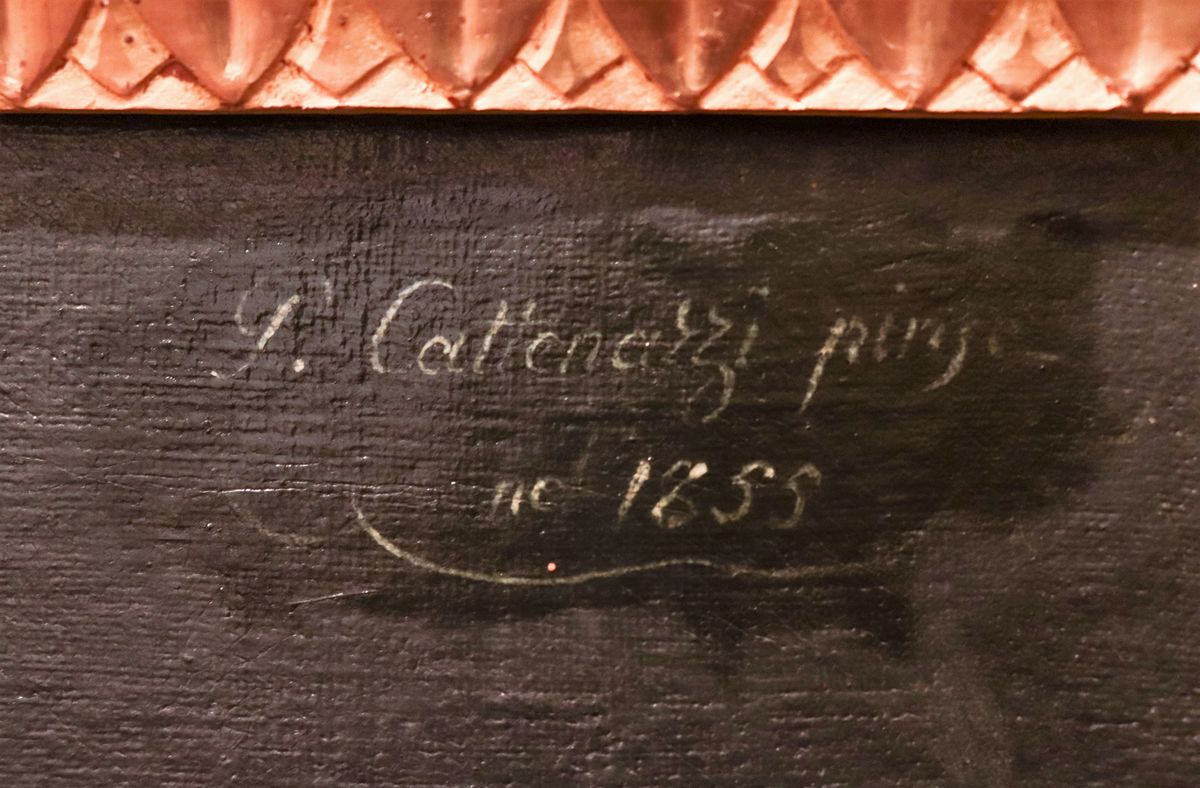 G. Cattenazzi pinse
ne 1855